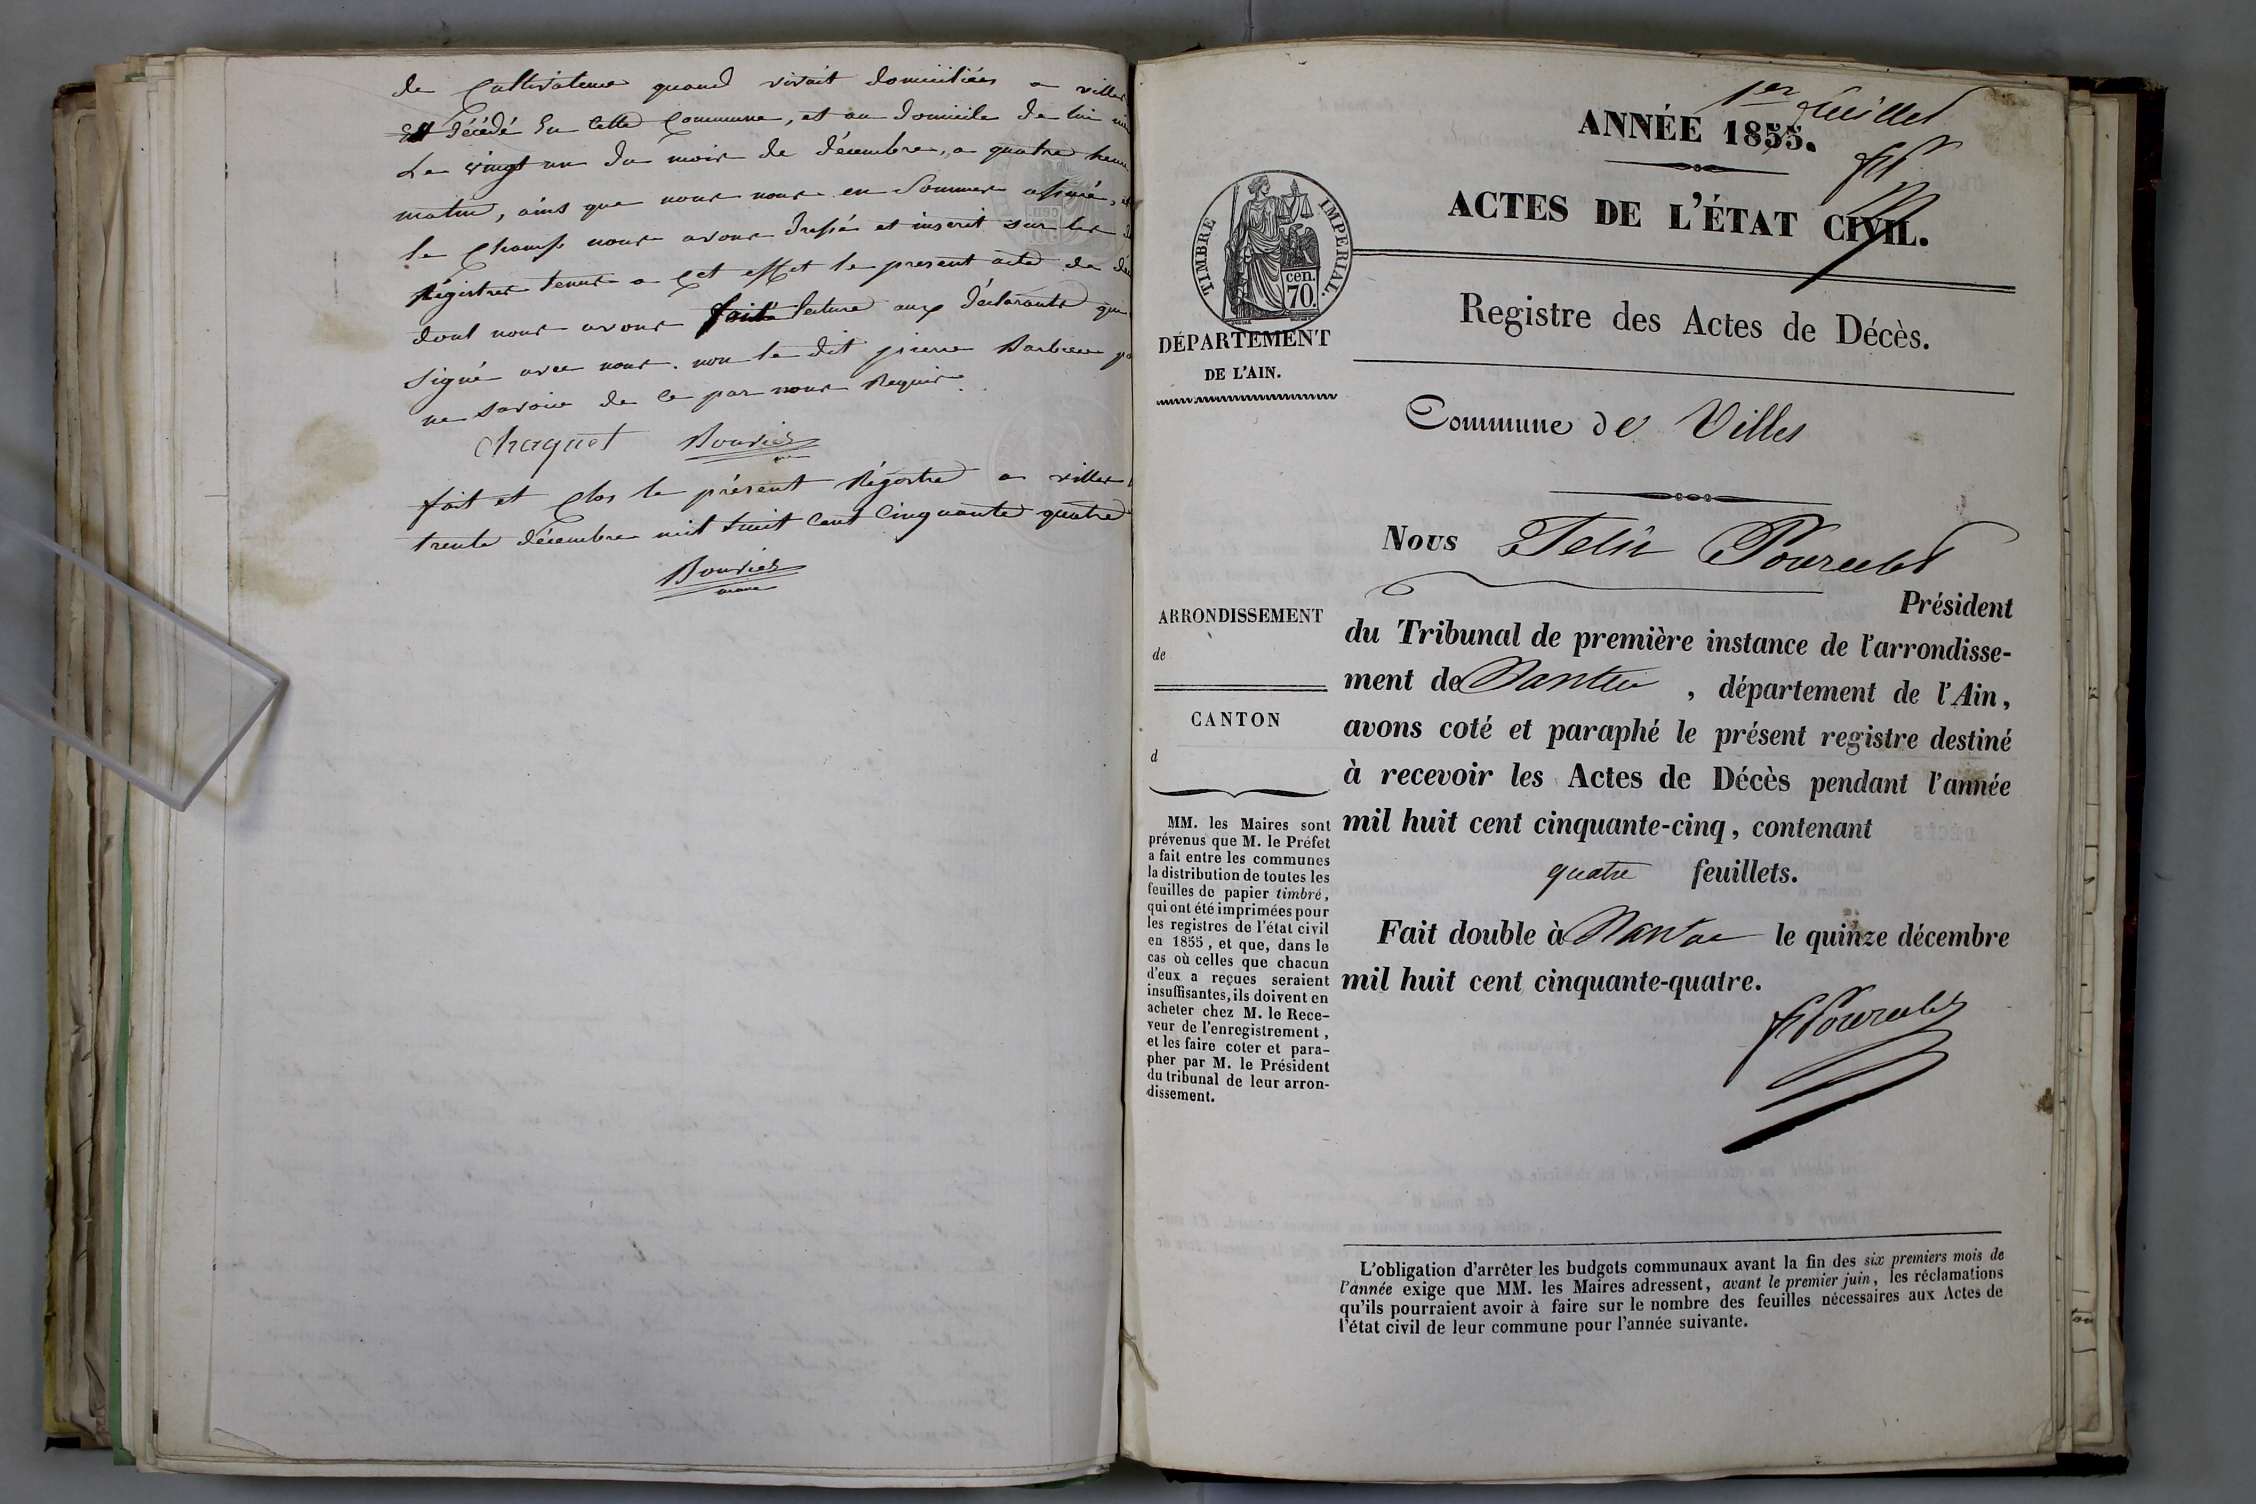 de Cultivateur quand vivait domiciliée a villes
Est décédé En Cette Commune, et au domicile de lui
Le vingt un du mois de décembre, a quatre heure
matin, ains que nous nous en Sommes assuré,
le Champ nous avons dressé et inscrit sur les
Régistres tenus a Cet effet le present acte de
dont nous avons fait lecture aux déclarants qui
Signé avec nous. non le dit pierre Barbier
ne savoir de ce par nous Requis.
Chaquet Bouvier
fait et Clos le présent Régistre a villes
trente décembre mil huit Cent Cinquante quatre
Bouvier
maire
1er feuillet
ANNÉE 1855.
ACTES DE L'ÉTAT CIVIL.
TIMBRE IMPERIAL.
cen.
70.
Registre des Actes de Décès.
DÉPARTEMENT
DE L'AIN.
Commune de Villes
Nous Felix
Président
du Tribunal de première instance de l'arrondisse-
ment de Nantua, département de l'Ain,
avons coté et paraphé le présent registre destiné
à recevoir les Actes de Décès pendant l'année
mil huit cent cinquante-cinq, contenant
quatre feuillets.
Fait double à Nantua le quinze décembre
mil huit cent cinquante-quatre.
ARRONDISSEMENT
de
CANTON
d
MM. les Maires sont
prévenus que M. le Préfet
a fait entre les communes
la distribution de toutes les
feuilles de papier timbré,
qui ont été imprimées pour
les registres de l'état civil
en 1855, et que, dans le
cas où celles que chacun
d'eux a reçues seraient
insuffisantes, ils doivent en
acheter chez M. le Rece-
veur de l'enregistrement,
et les faire coter et para-
pher par M. le Président
du tribunal de leur arron-
dissement.
L'obligation d'arrêter les budgets communaux avant la fin des six premiers mois de
l'année exige que MM. les Maires adressent, avant le premier juin, les réclamations
qu'ils pourraient avoir à faire sur le nombre des feuilles nécessaires aux Actes de
l'état civil de leur commune pour l'année suivante.